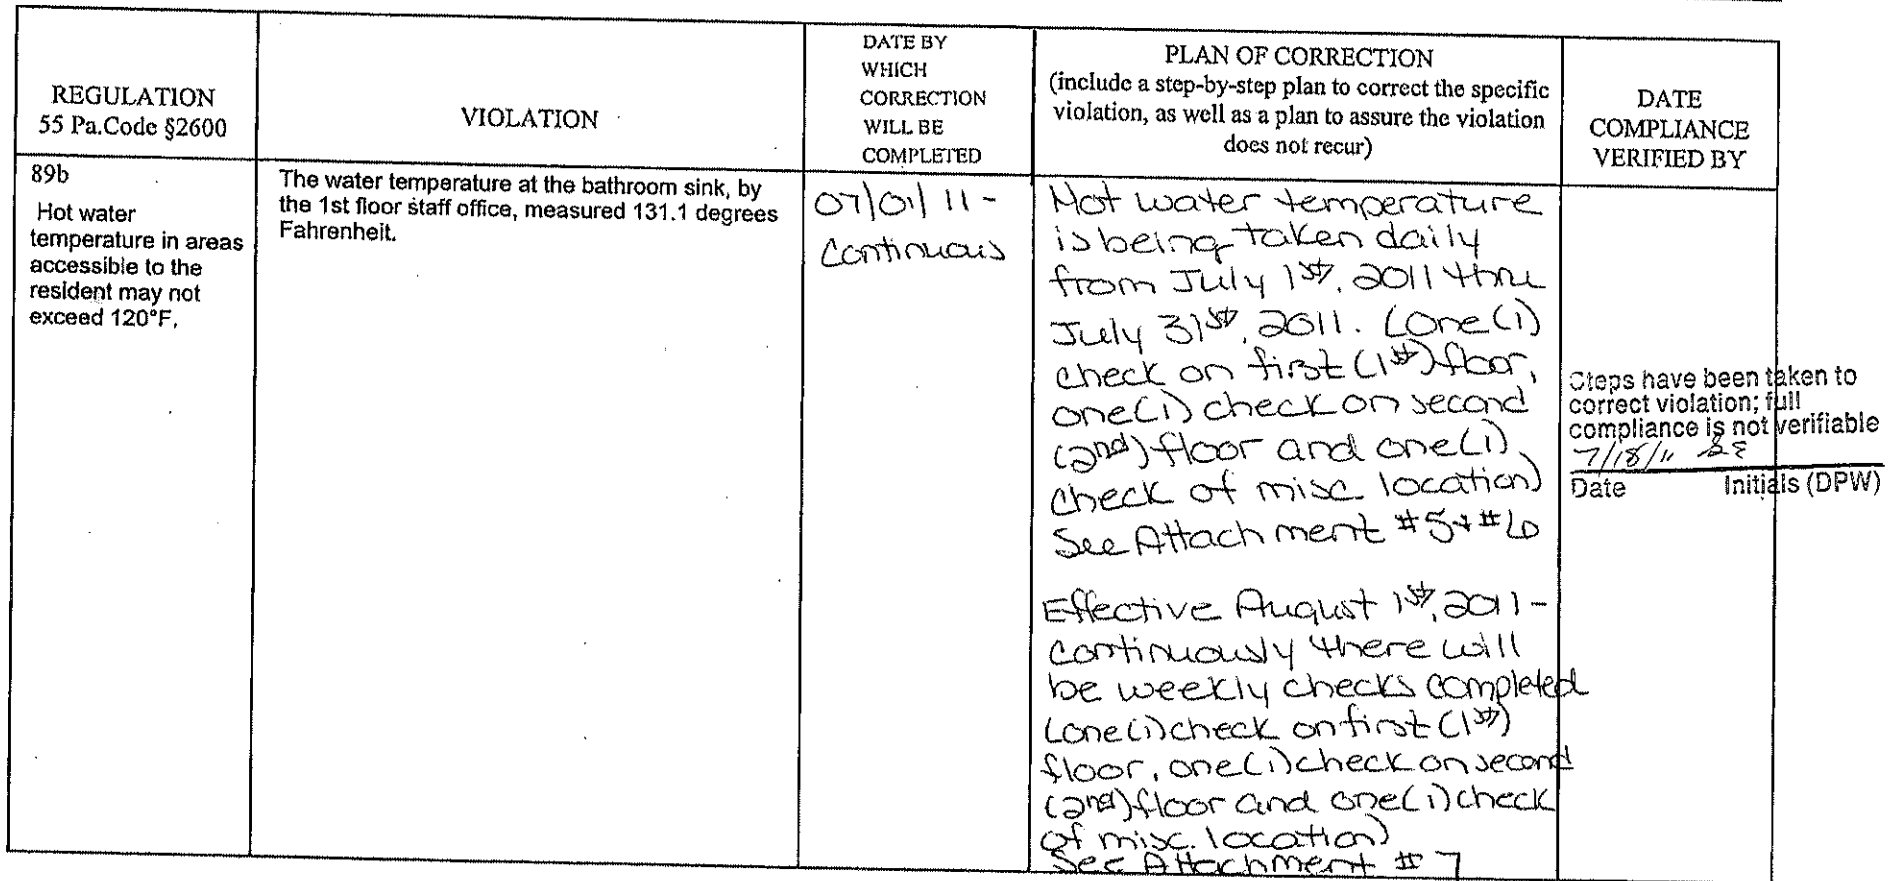 REGULATION
55 Pa.Code §2600
VIOLATION
DATE BY
WHICH
CORRECTION
WILL BE
COMPLETED
PLAN OF CORRECTION
(include a step-by-step plan to correct the specific
violation, as well as a plan to assure the violation
does not recur)
DATE
COMPLIANCE
VERIFIED BY
89b
Hot water
temperature in areas
accessible to the
resident may not
exceed 120°F.
The water temperature at the bathroom sink, by
the 1st floor staff office, measured 131.1 degrees
Fahrenheit.
07/01/11 -
Continuous
Hot water temperature
is being taken daily
from July 1st, 2011 thru
July 31st, 2011. (One (1)
check on first (1st) floor,
one (1) check on second
(2nd) floor and one (1)
check of misc. location)
See Attachment #5 + #6
Effective August 1st, 2011 -
continuously there will
be weekly checks completed
(one (1) check on first (1st)
floor, one (1) check on second
(2nd) floor and one (1) check
of misc. location)
See Attachment # 7
Steps have been taken to
correct violation; full
compliance is not verifiable
7/18/11
Date Initials (DPW)